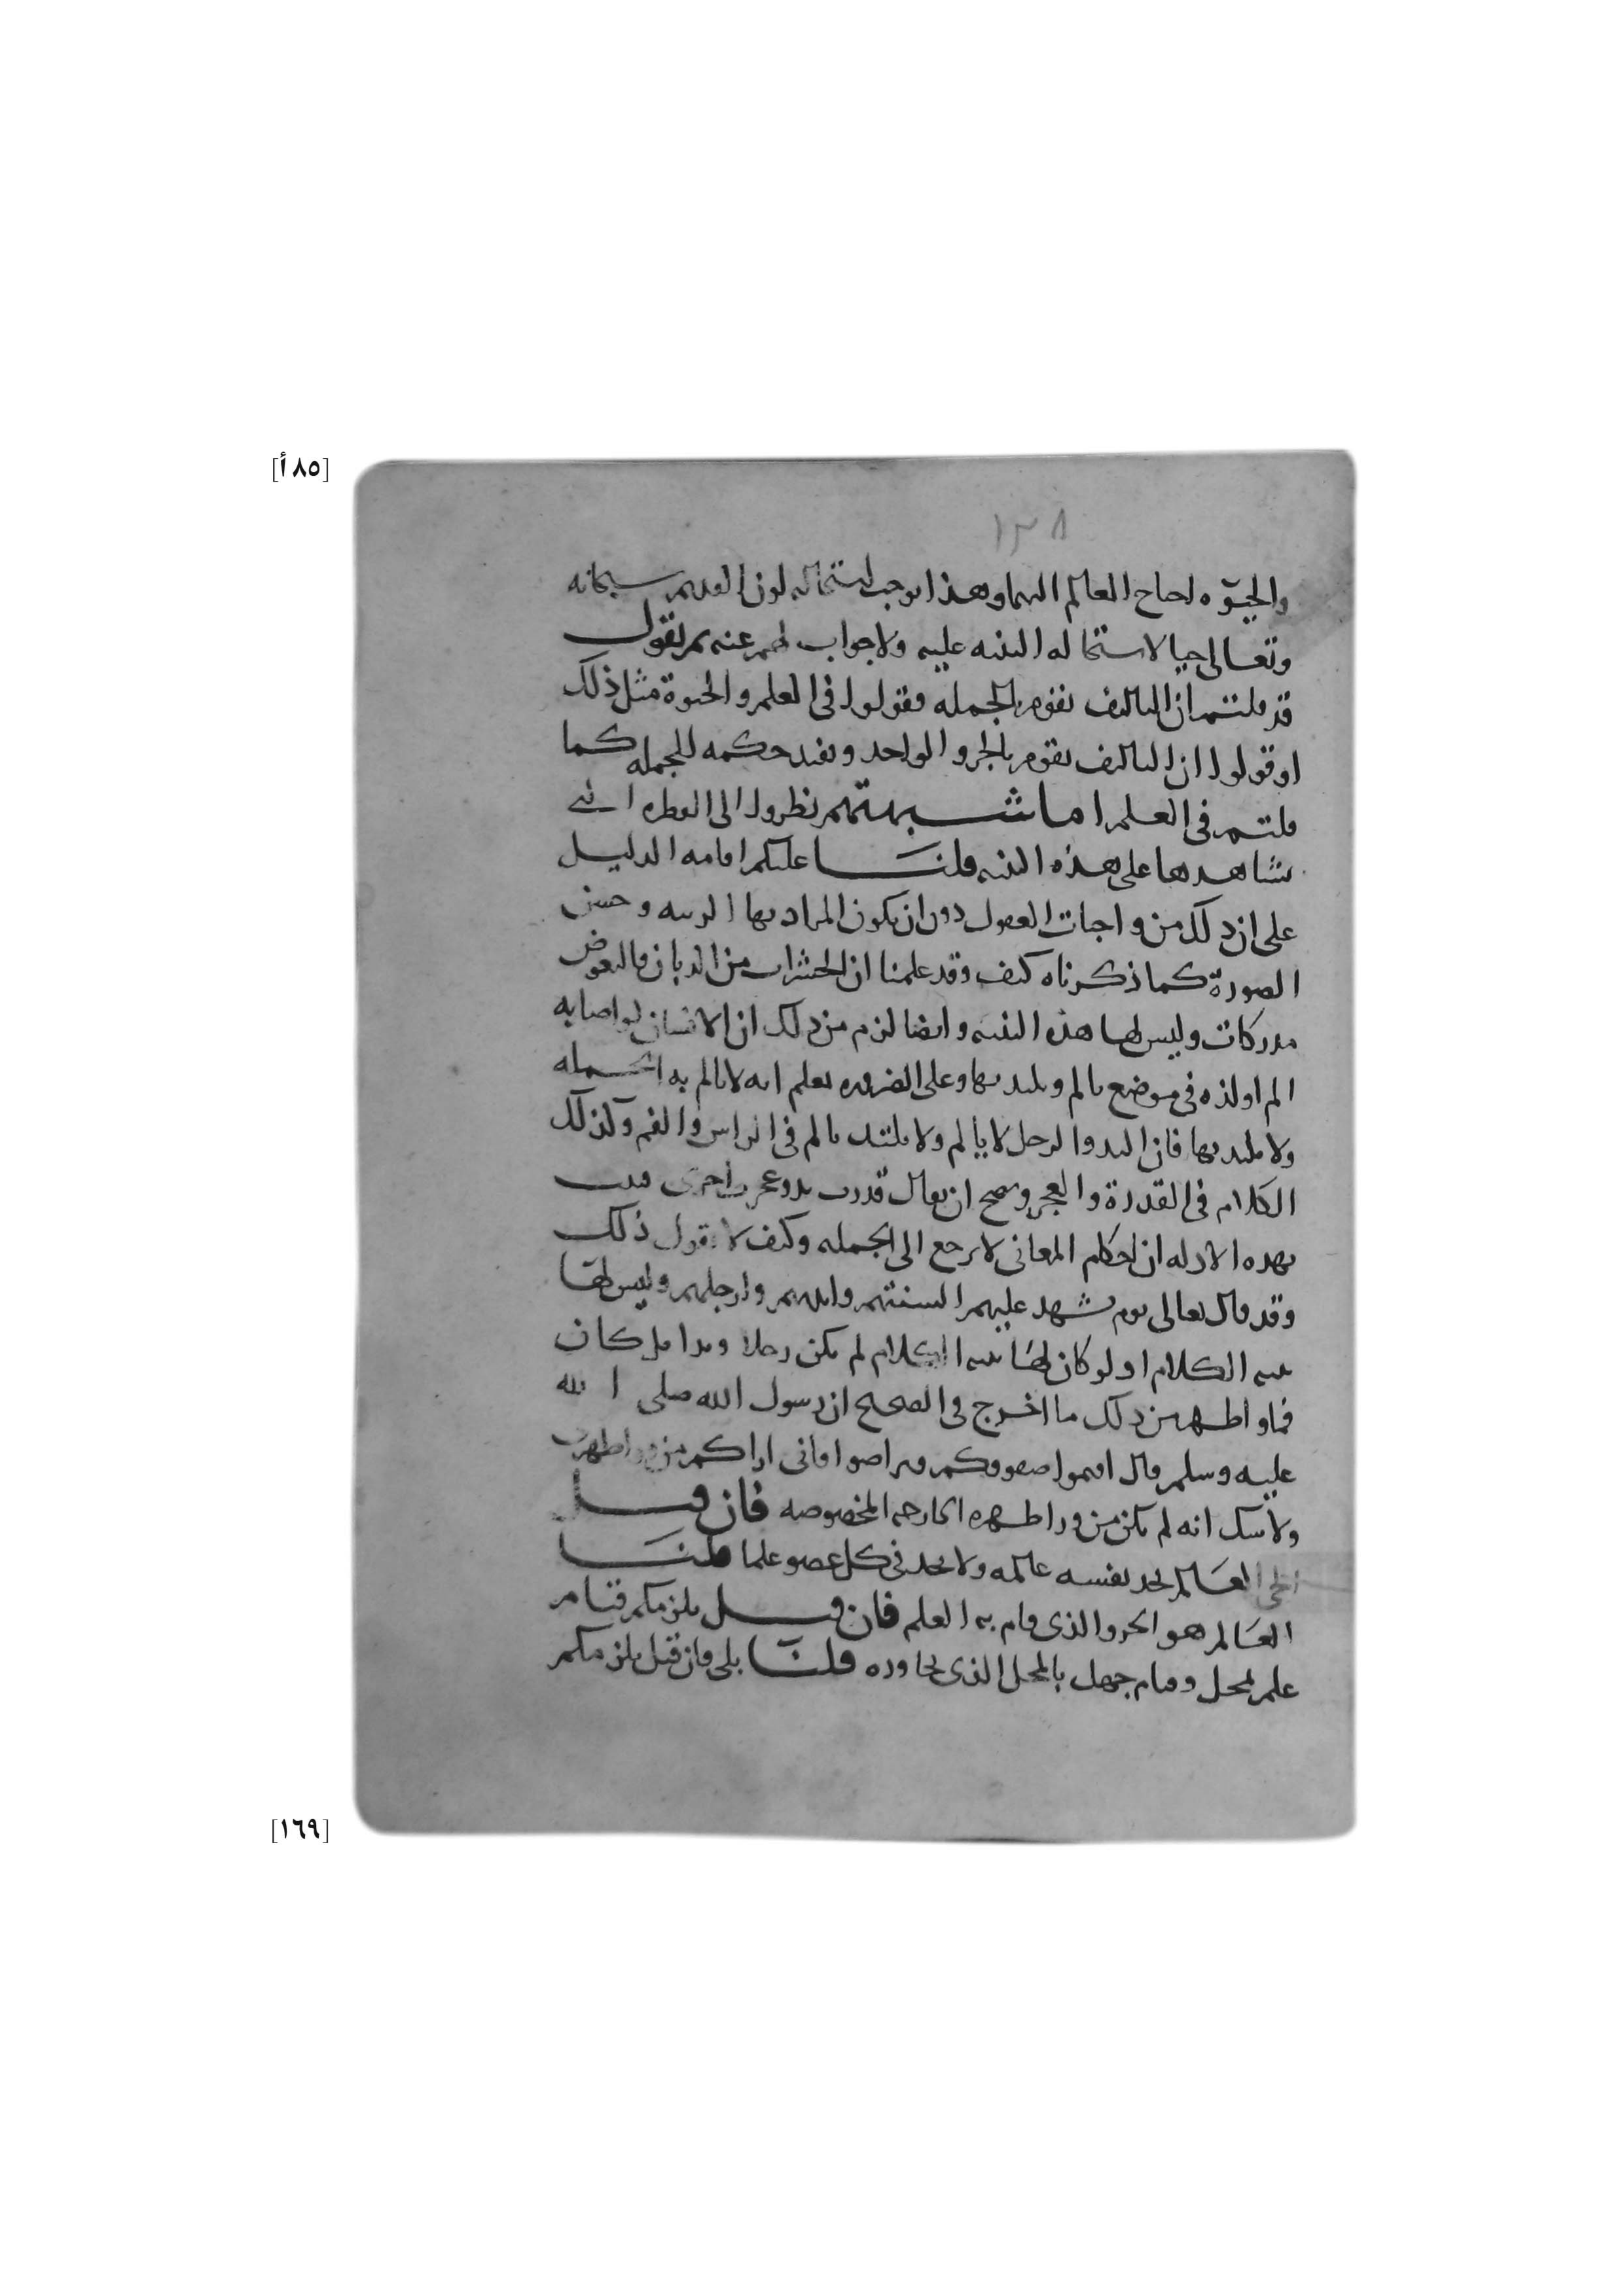 [٨٥أ]
١٣٨
والحيوة لاحتاج العالم اليها وهذا يوجب استحالة كون القديم سبحانه
وتعالى حيا لاستحالة البنية عليه ولا جواب لهم عنه ثم نقول
قد قلتم ان التاليف يقوم بالجملة فقولوا في العلم والحيوة مثل ذلك
او قولوا ان التاليف يقوم بالجزو الواحد ويفيد حكمه للجملة كما
قلتم في العلم اما شبهتهم نظروا الى الفطرة التي
شاهدها على هذه البنية قلنا عليكم اقامة الدليل
على ان ذلك من واجبات العقول دون ان يكون المراد بها الزينة وحسن
الصورة كما ذكرناه كيف وقد علمنا ان الحشرات من الذبان والبعوض
مدركات وليس لها هذه البنية وايضا لزم من ذلك ان الانسان لو اصابه
الم او لذة في موضع يالم ويلتذ بها وعلى الضرورة نعلم انه لا يالم به الجملة
ولا يلتذ بها فان اليد والرجل لا يألم ولا يلتذ بالم في الراس والفم وكذلك
الكلام في القدرة والعجز ويصح ان يقال قدرت يد وعجزت اخرى فثبت
بهذه الادلة ان احكام المعاني لا يرجع الى الجملة وكيف لا نقول ذلك
وقد قال تعالى يوم تشهد عليهم السنتهم وايديهم وارجلهم وليس لها
بنية الكلام او لو كان لها بنية الكلام لم يكن رجلا ويدا بل كان
فما واظهر من ذلك ما اخرج في الصحيح ان رسول الله صلى الله
عليه وسلم قال اقيموا صفوفكم وتراصوا فاني اراكم من ورا ظهري
ولا شك انه لم يكن من ورا ظهره الجارحة المخصوصة فان قيل
الحي العالم يجد نفسه عالمة ولا يجد في كل عضو علما قلنا
العالم هو الجزو الذي قام به العلم فان قيل يلزمكم قيام
علم بمحل وقيام جهل بالمحل الذي يجاوره قلنا بلى فان قيل يلزمكم
[١٦٩]